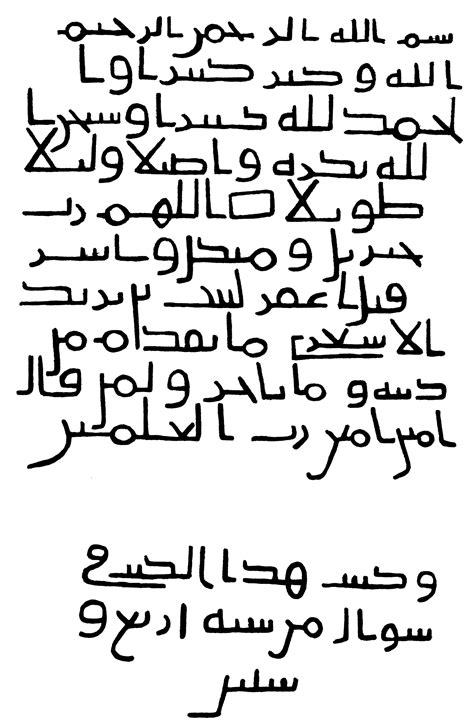 بسم الله الرحمن الرحيم
الله وكبر كبيرا وا
لحمد لله كثيرا وسبحن ا
لله بكره واصيلا وليلا
طويلا اللهم رب
جبريل وميكل واسر
فيل اغفر لثبت بن يزيد
الاشعري ما تقدم من
ذنبه وما تاخر ولمن قال
امين امين رب العلمين
وكتبت هذا الكتب في
شوال من سنه اربع و
ستين